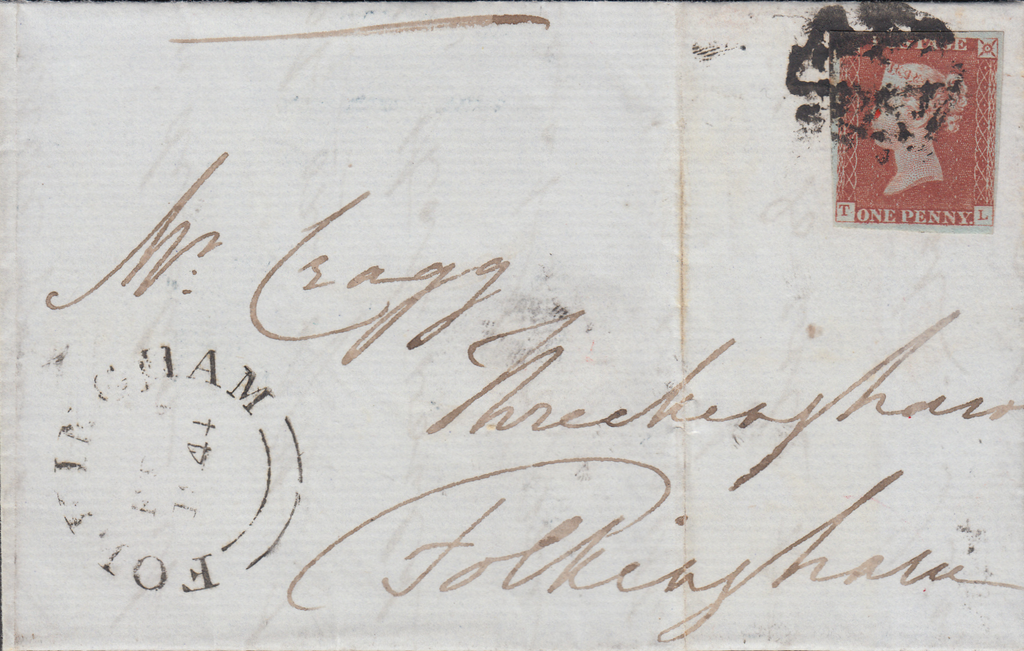 POSTAGE
T ONE PENNY. L
Mr. Cragg
Threckingham
Folkingham
FOLKINGHAM